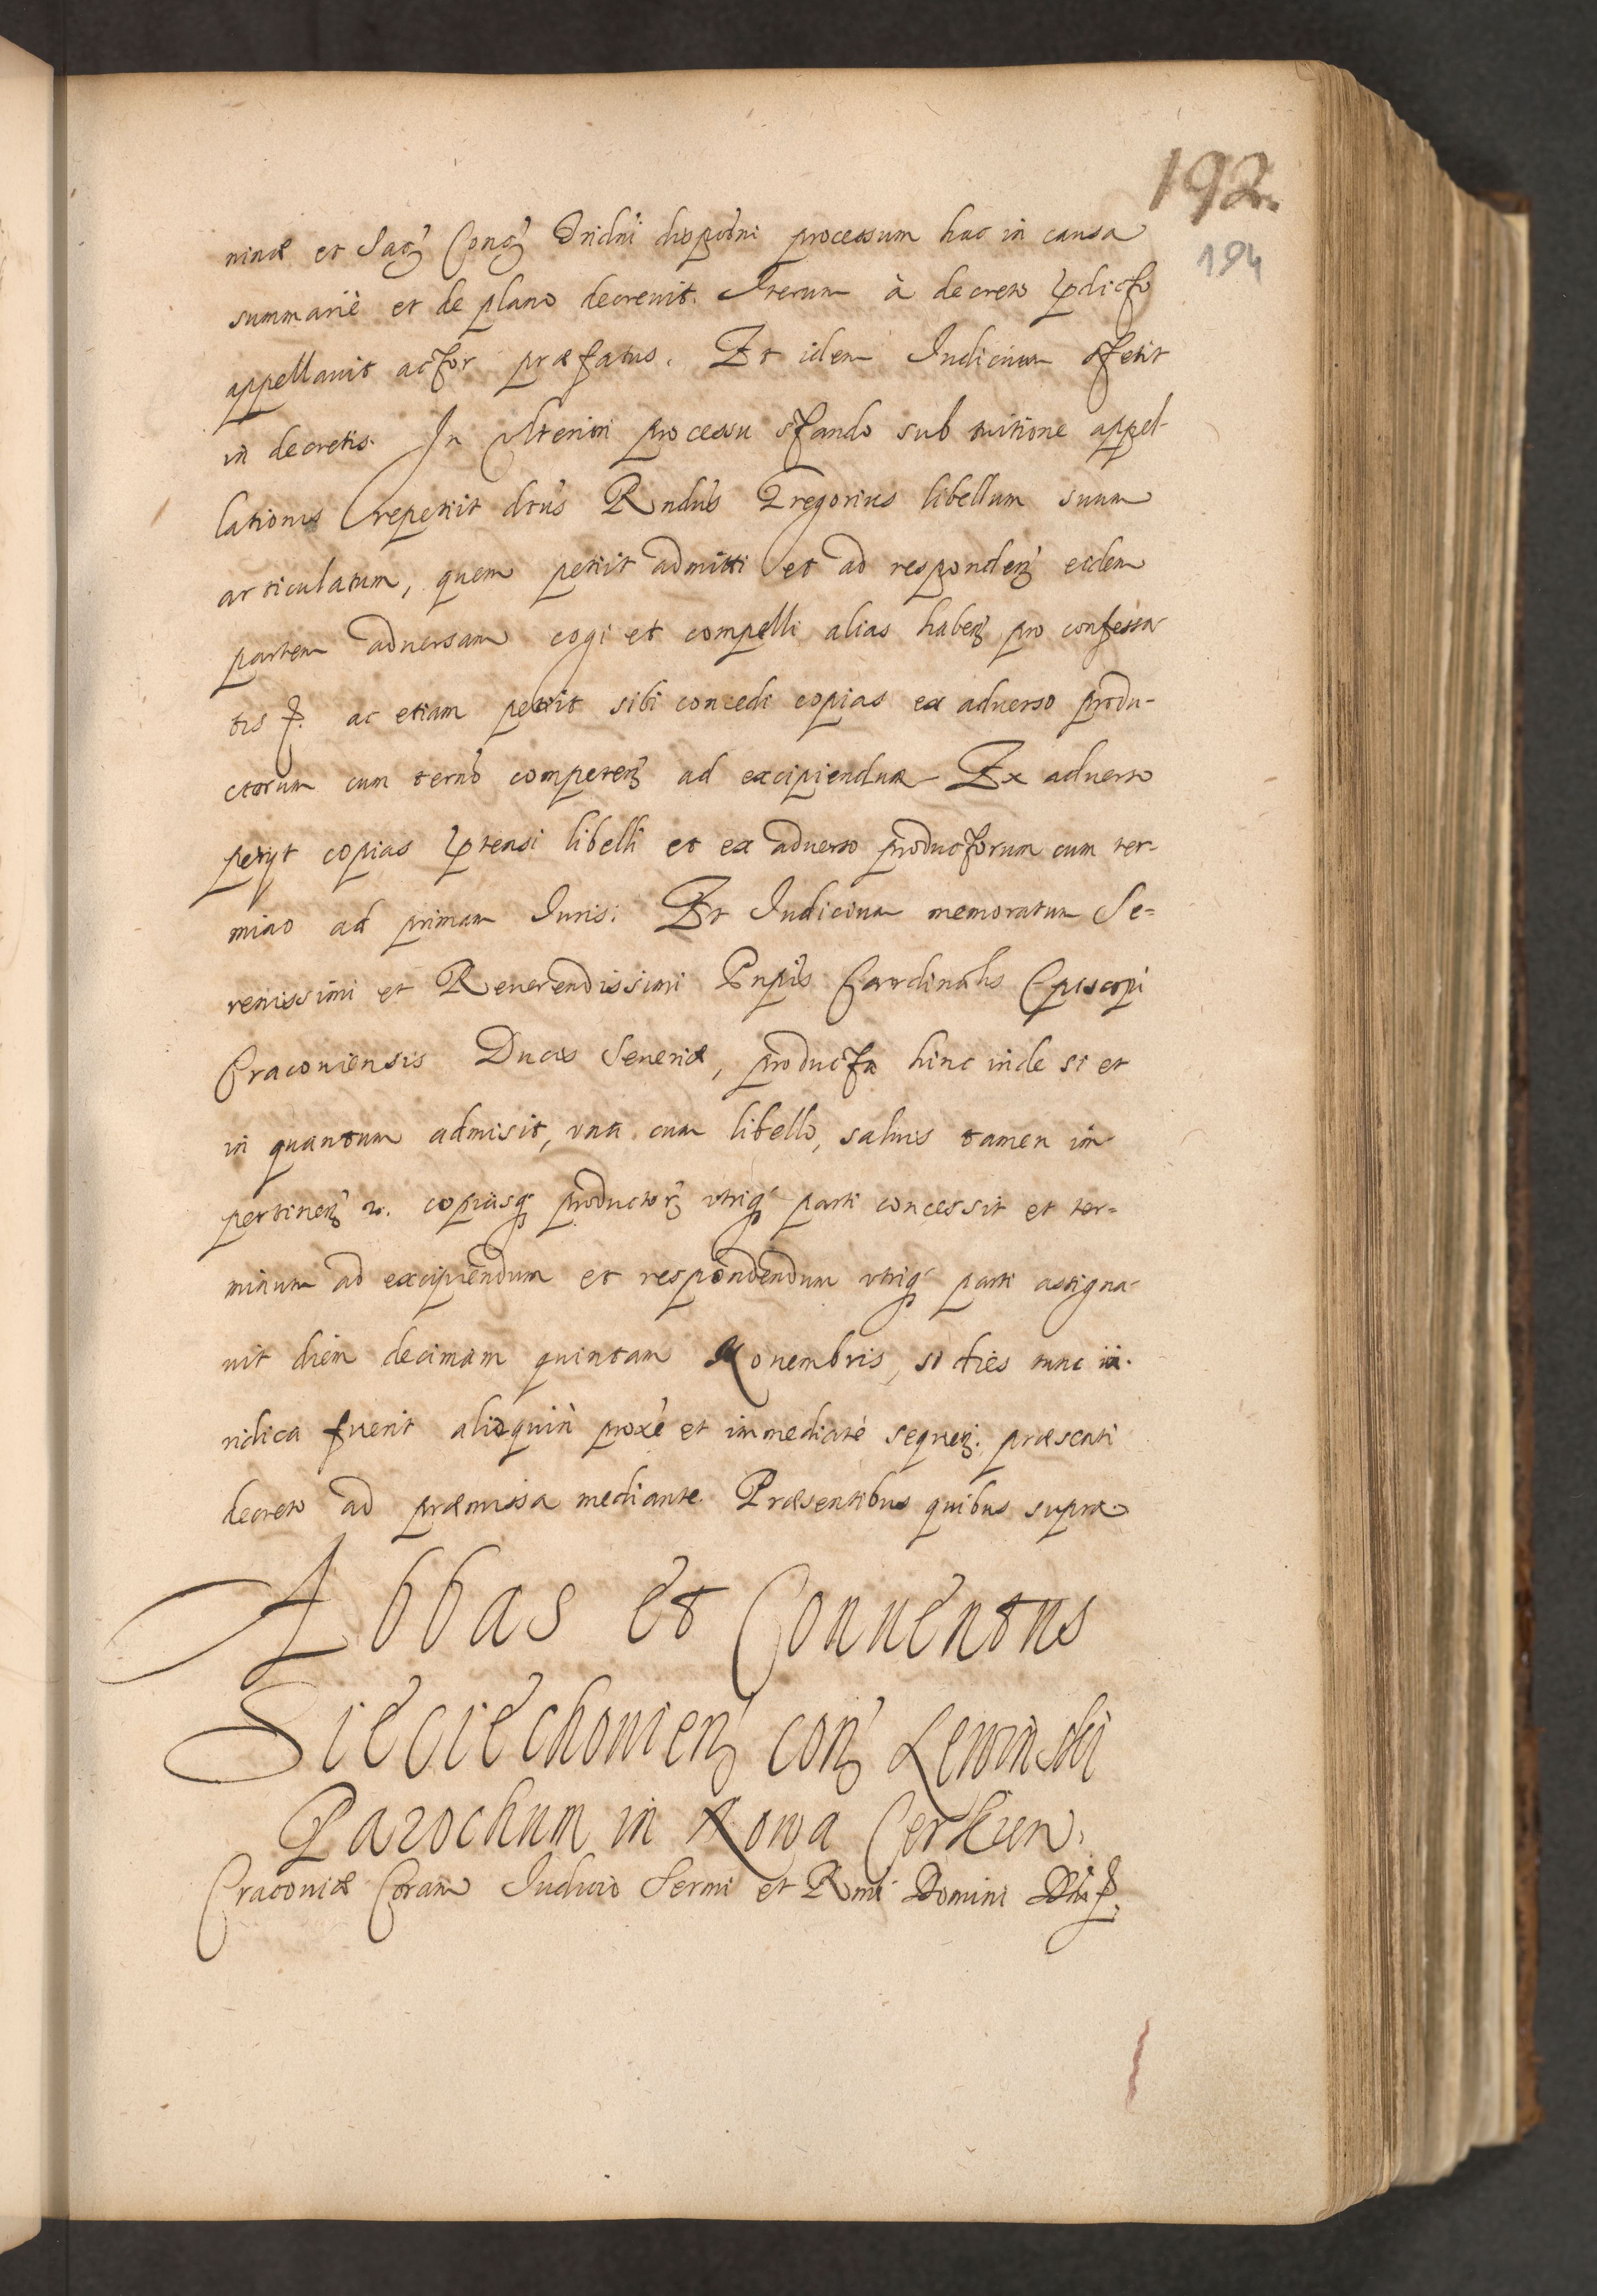 192.
194
ninæ et Sacꝫ Congꝫ Tridni dispoõni processum hac in causa
summariè et de plano decrevit. Iterum à decreto p̃dicto
appellavit actor præfatus. Et idem Iudicium stetit
in decretis. In vlteriori processu stando sub tuitione appel-
lationis repetiit dtus Rndus Gregorius libellum suum
articulatum, quem petiit admitti et ad respondenꝫ eidem
partem aduersam cogi et compelli alias habenꝫ pro confessa-
tis ac etiam petiit sibi concedi copias ex aduerso produ-
ctorum cum termõ competenꝫ ad excipiendum Ex aduerso
petijt copias p̃tensi libelli et ex aduerso productorum cum ter-
mino ad primam Iuris. Et Iudicium memoratum Se=
renissimi et Reuerendissimi Pnpis Cardinalis Episcopi
Cracouiensis Ducis Seueriæ, producta hinc inde si et
in quantum admisit, vna cum libello, saluis tamen im
pertinenꝫ copiasqꝫ productorꝫ vtriqꝫ parti concessit et ter=
minum ad excipiendum et respondendum vtriqꝫ parti assigna-
uit diem decimam quintam Nouembris, si dies tunc iu-
ridica fuerit alioquin proxe et immediatè sequenꝫ. præscati
decreto ad præmissa mediante. Præsentibus quibus supra
Abbas et Conuentus
Sieciechouienꝫ conꝫ Lewinski
Parochum in Nowa Cerkien.
Cracouiæ Coram Iudicio Sermi et Rmi Domini